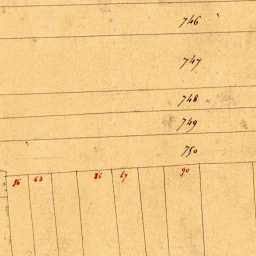 746
747
748
749
750
86 67 90